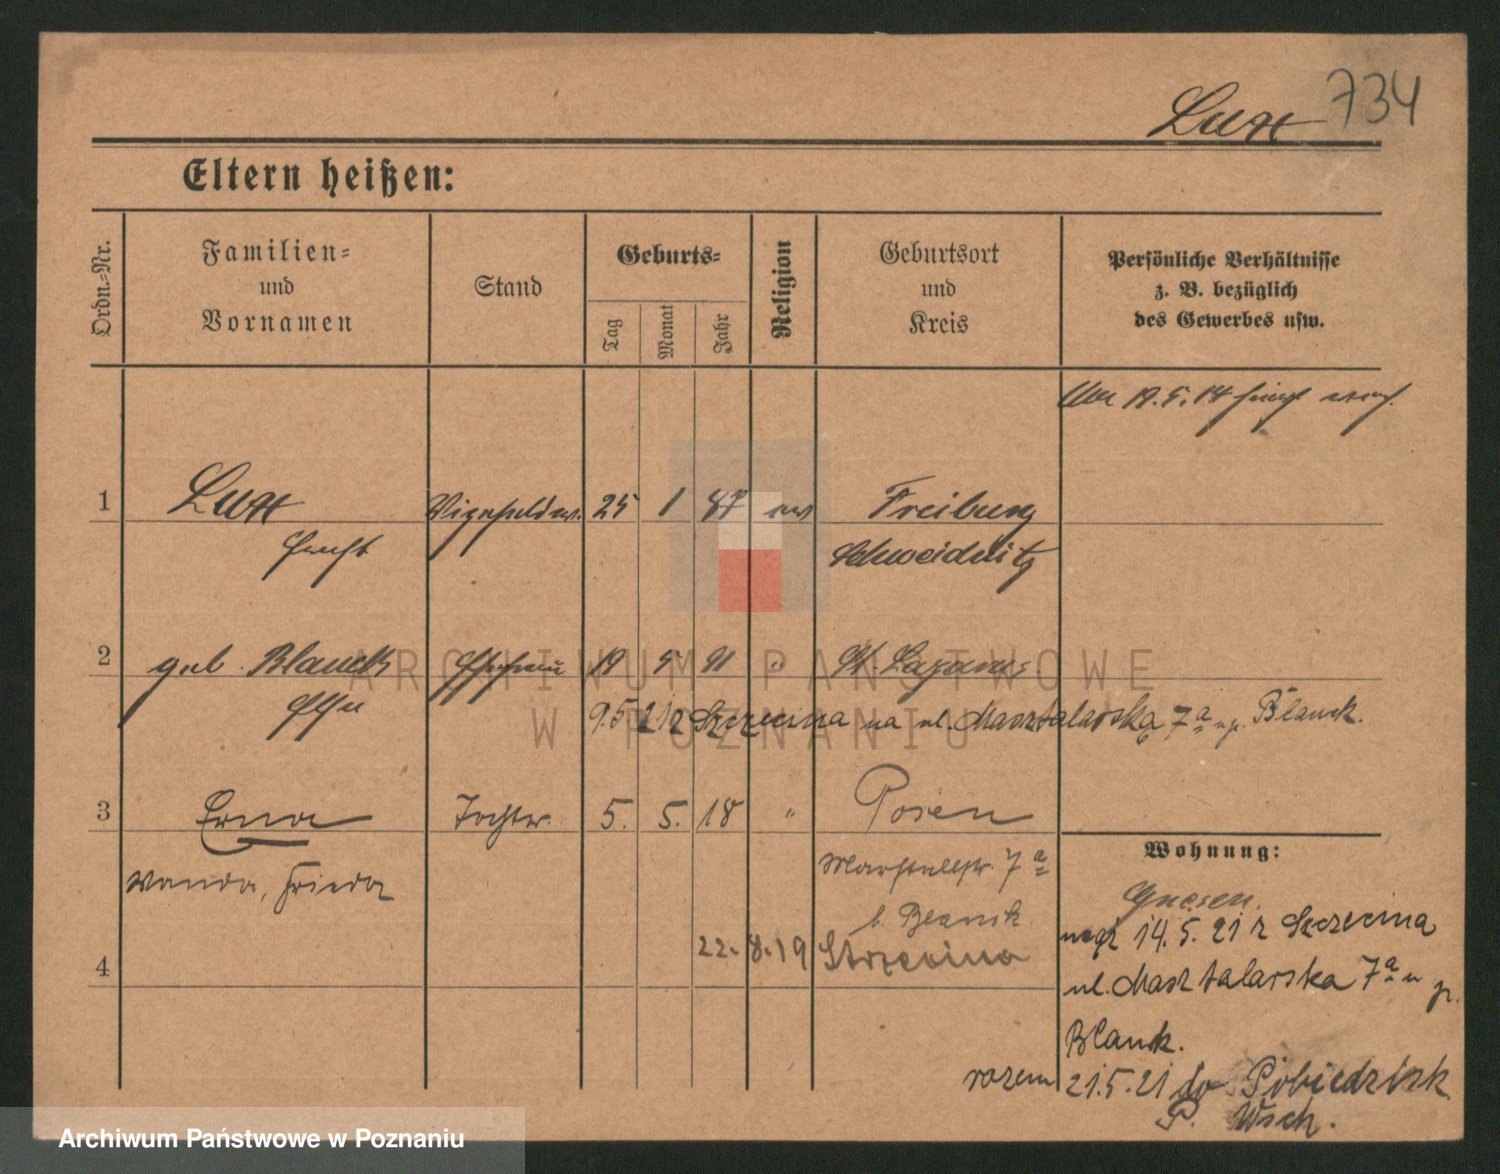 Lux 734
Eltern heißen:
Ordn.-Nr.
Familien-
und
Vornamen
Stand
Geburts-
Tag
Monat
Jahr
Religion
Geburtsort
und
Kreis
Persönliche Verhältnisse
z. B. bezüglich
des Gewerbes usw.
19.5.14
1 Lux 25 1 87 ev Freiburg
Schweidnitz
2 geb. Blanck Ehefrau 19 5 91 " St. Lazarus
9.5.21 z Szczecina na ul. Masztalarską 7a u p. Blanck.
3 Erna Tochter 5. 5. 18 " Posen
Wanda, Frieda
Marstallstr. 7a
b. Blanck
22.8.19
4
Wohnung:
Gnesen.
14.5.21 z Szczecina
ul. Masztalarska 7a u p.
Blanck.
razem 21.5.21 do Pobiedzisk
P. Wsch.
ARCHIWUM PAŃSTWOWE
W POZNANIU
Archiwum Państwowe w Poznaniu